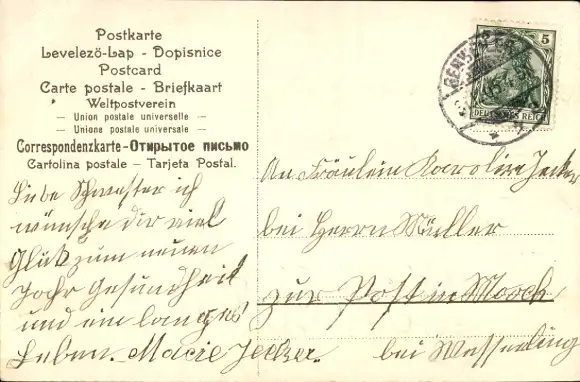 Postkarte
Levelező-Lap - Dopisnice
Postcard
Carte postale - Briefkaart
Weltpostverein
— Union postale universelle —
— Unione postale universale —
Correspondenzkarte - Открытое письмо
Cartolina postale — Tarjeta Postal.
Liebe Schwester ich
wünsche dir viel
Glük zum neuen
Jahr Gesundheit
und ein langes
Leben. Marie Jecker.
An Fräulein Karoline Jecker
bei Herrn Müller
zur Post in Mosch
bei Wesserling
5
DEUTSCHES REICH